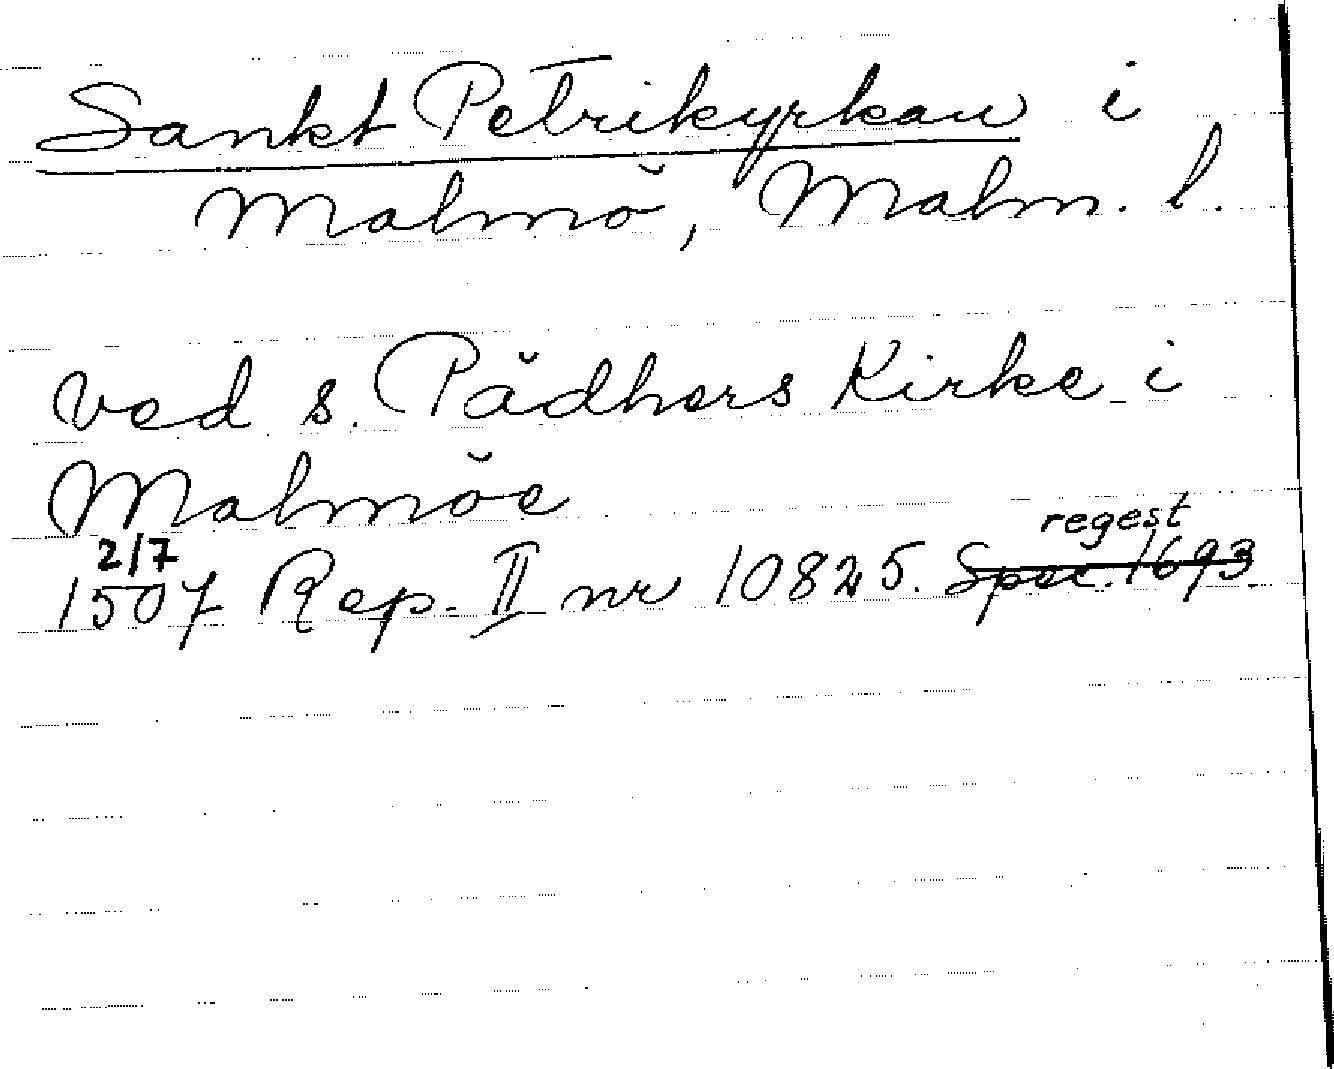 Sankt Petrikyrkan i
Malmö, Malm. l.
Ved s. Pädhers Kirke i
Malmöe
2/7
regest
1507 Rep. II nr 10825. Spec. 1693